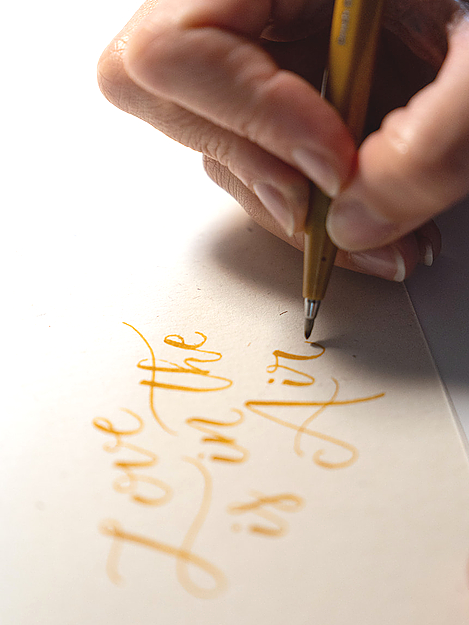 Love
is in the
Air